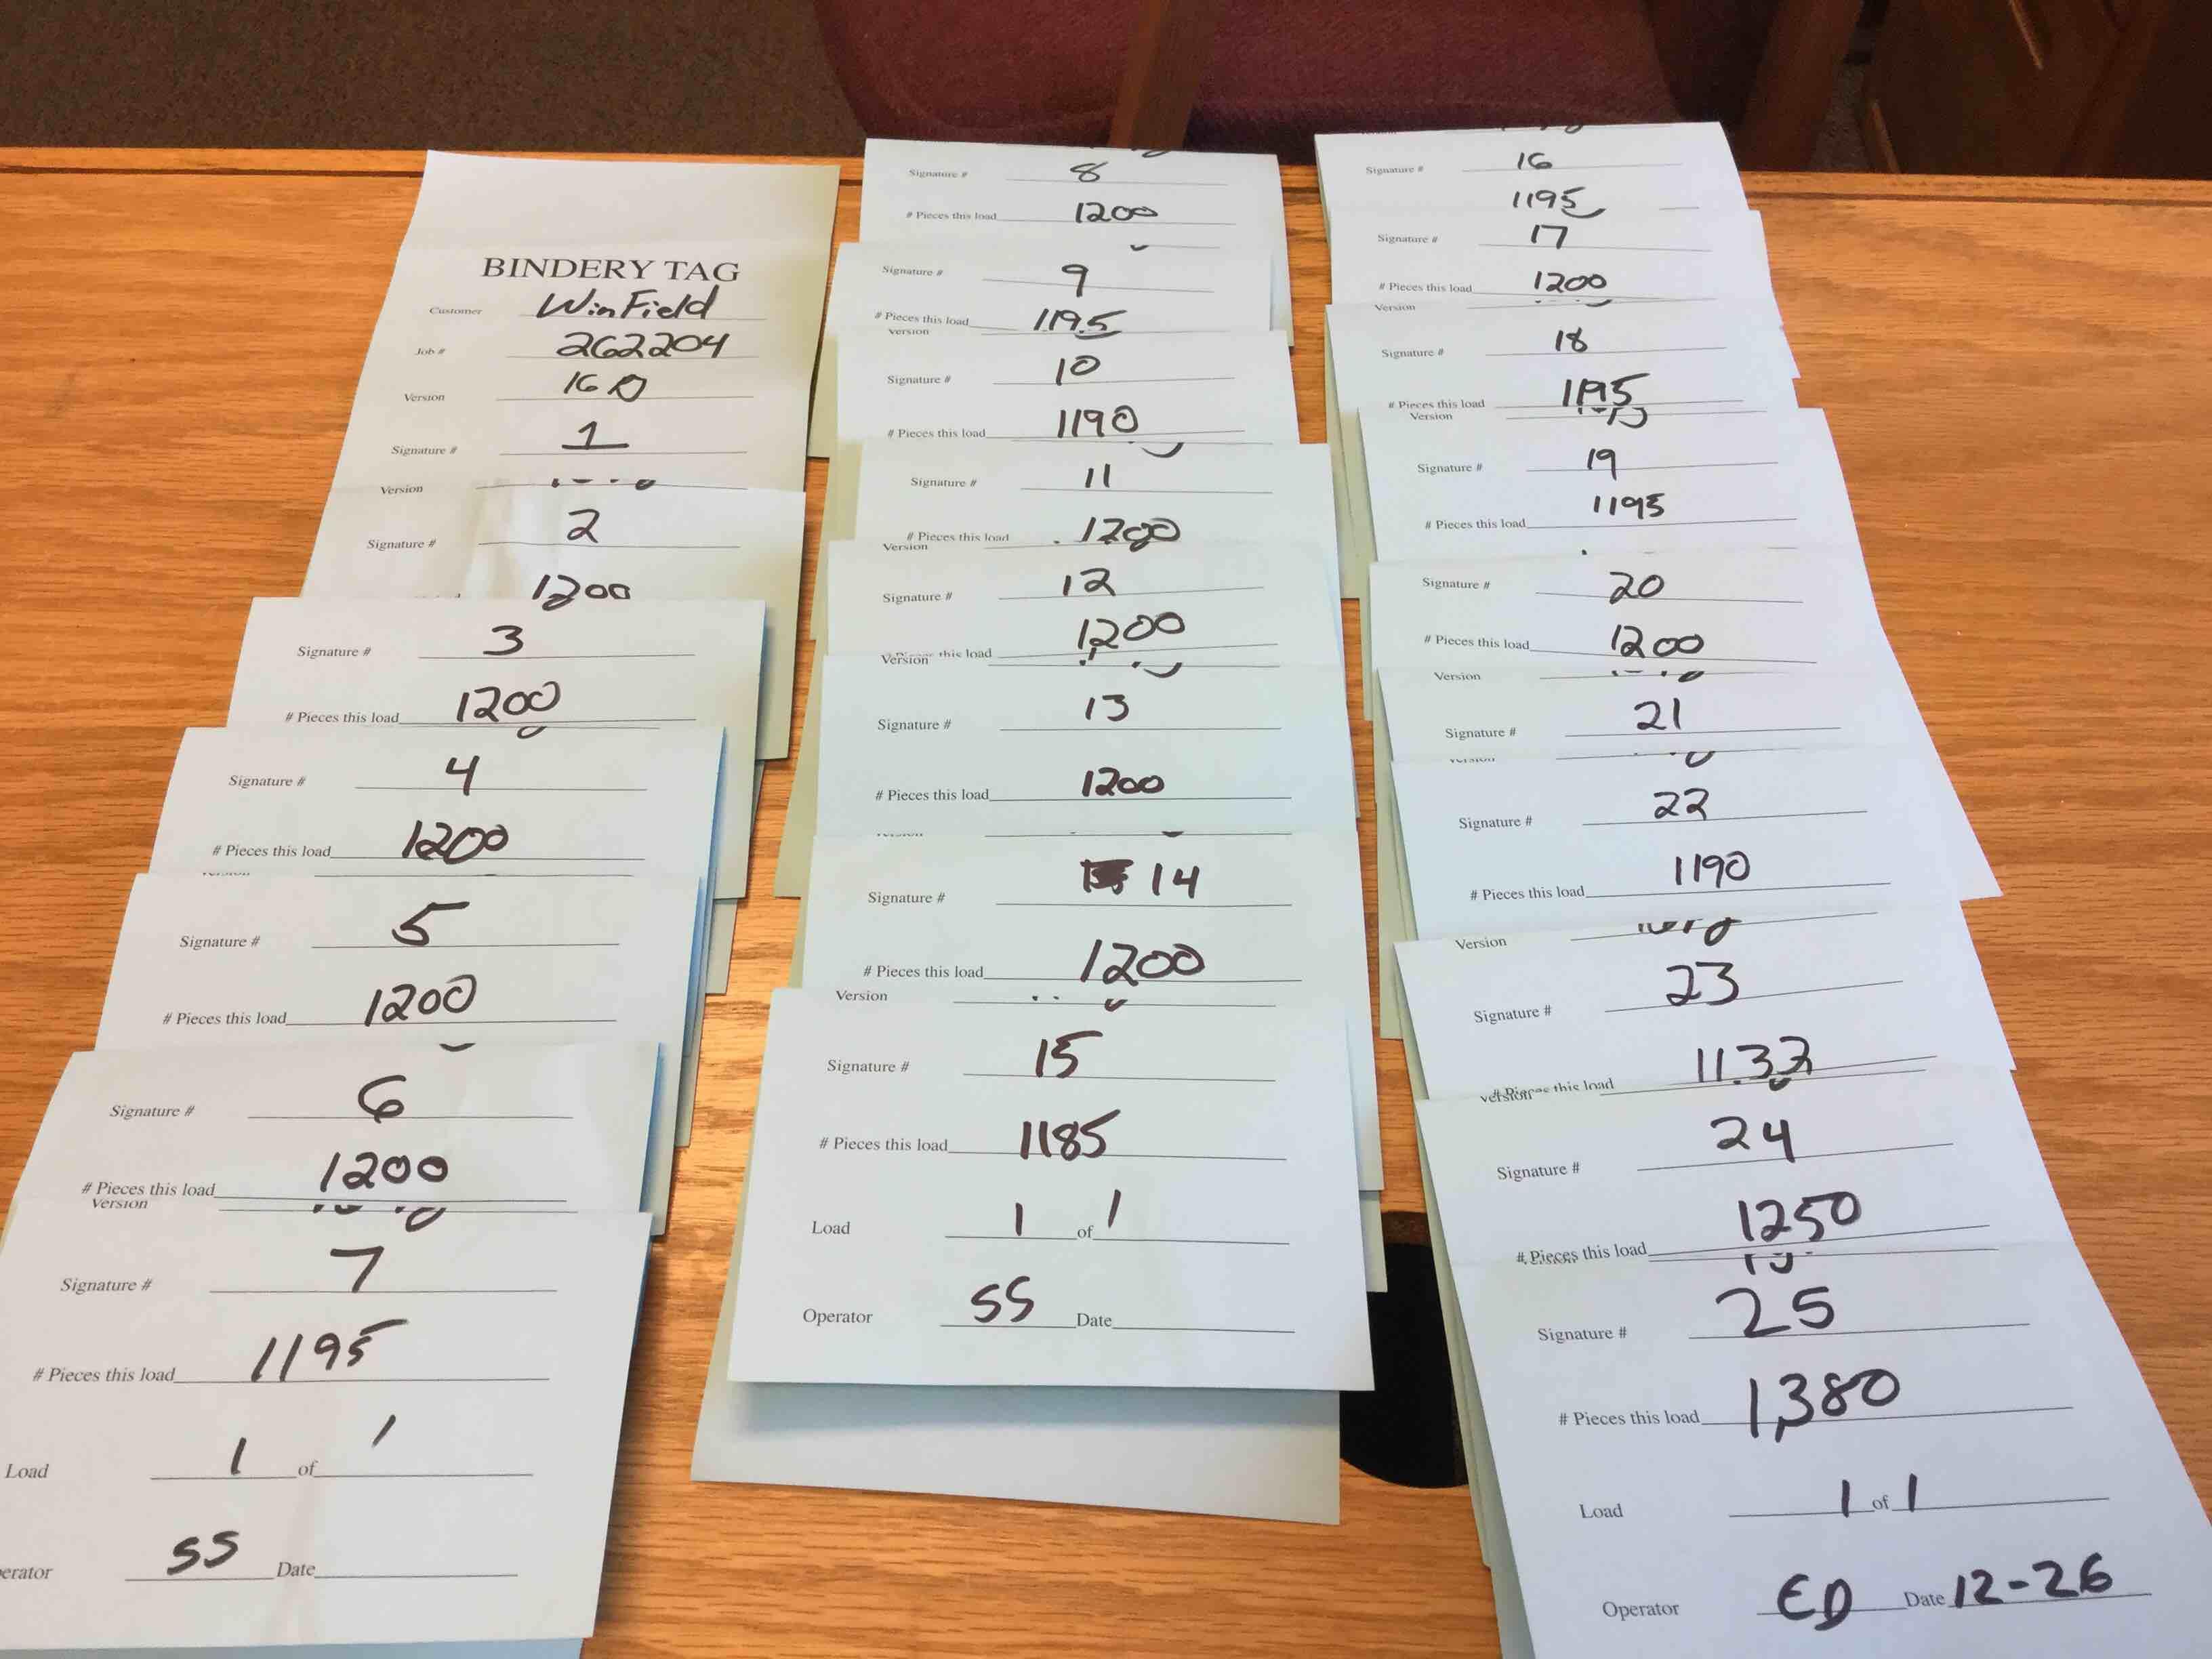 BINDERY TAG
Customer WinField
Job # 262204
Version 16 D
Signature # 1
Version
Signature # 2
1200
Signature # 3
# Pieces this load 1200
Signature # 4
# Pieces this load 1200
Signature # 5
# Pieces this load 1200
Signature # 6
# Pieces this load 1200
Version
Signature # 7
# Pieces this load 1195
Load 1 of 1
erator SS Date
Signature # 8
# Pieces this load 1200
Signature # 9
# Pieces this load 1195
Version
Signature # 10
# Pieces this load 1190
Signature # 11
# Pieces this load 1200
Version
Signature # 12
this load 1200
Version
Signature # 13
# Pieces this load 1200
Signature # 14
# Pieces this load 1200
Version
Signature # 15
# Pieces this load 1185
Load 1 of 1
Operator SS Date
Signature # 16
1195
Signature # 17
# Pieces this load 1200
Version
Signature # 18
# Pieces this load 1195
Version
Signature # 19
# Pieces this load 1195
Signature # 20
# Pieces this load 1200
Version
Signature # 21
Signature # 22
# Pieces this load 1190
Version
Signature # 23
# Pieces this load 1133
Version
Signature # 24
# Pieces this load 1250
Signature # 25
# Pieces this load 1,380
Load 1 of 1
Operator ED Date 12-26